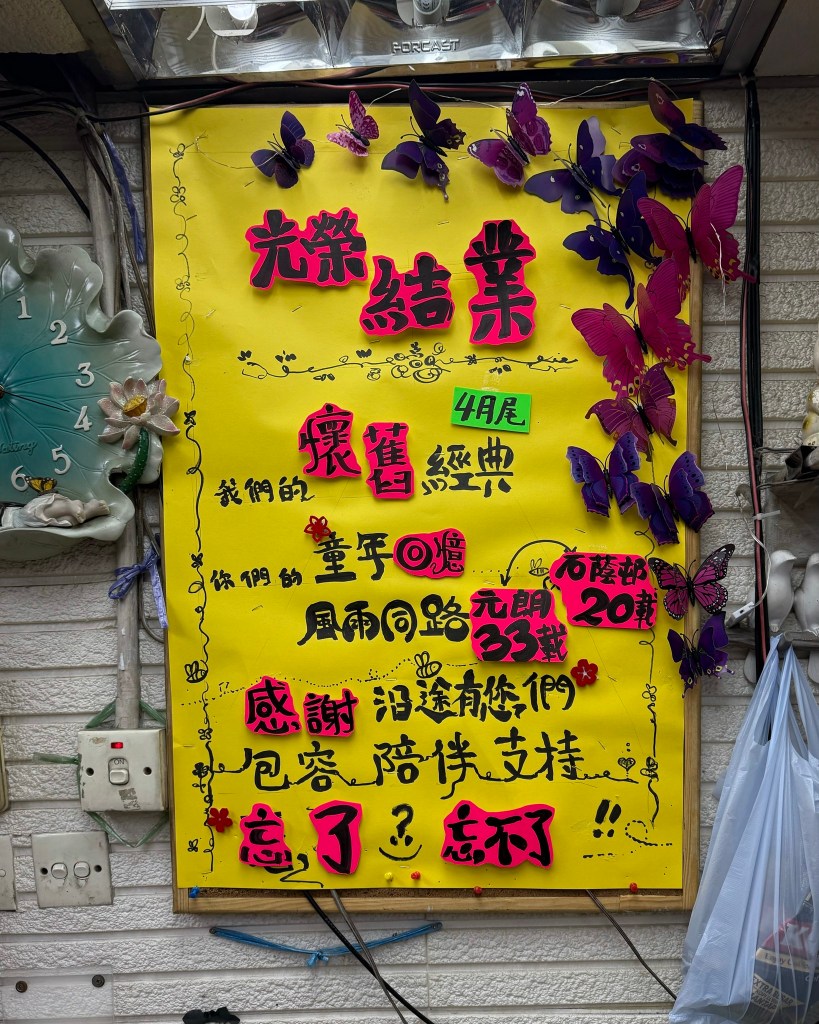 PORCAST
光榮結業
4月尾
我們的懷舊經典
你們的童年回憶
石蔭邨20載
風雨同路元朗33載
感謝沿途有您們
包容陪伴支持
忘了？忘不了!!
1
2
3
4
5
6
ON